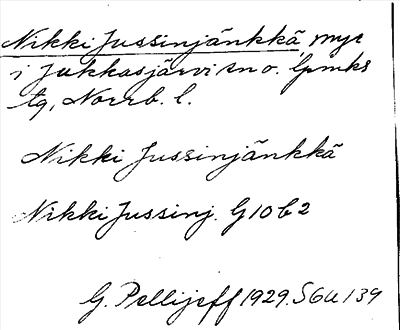 Nikki Jussinjänkkä, myr
i Jukkasjärvi sn o. lpmks
tg, Norrb. l.
Nikki Jussinjänkkä
Nikki Jussinj. G10b2
G. Pellijeff 1929. SGU 139